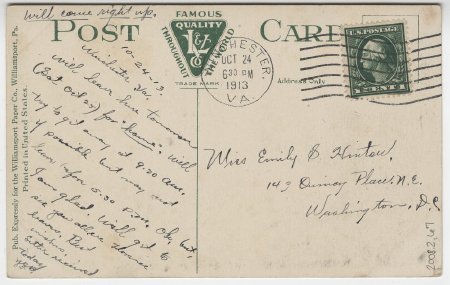 Will come right up.
POST CARD
FAMOUS
QUALITY
THROUGHOUT THE WORLD
TRADE MARK
CHESTER,
OCT 24
6 30 PM
1913
VA.
U.S. POSTAGE
Address Only
Pub. Expressly for the Williamsport Paper Co., Williamsport, Pa.
Printed in United States.
10-24-13.
Winchester Va.
Will leave here tomorrow
(Sat Oct 25) for "home". Will
try to get away at 9:20 a.m.
if possible but may not
leave before 5:30 P.M. Oh, but
I am glad. Will get to
see you all
leaves. Best
wishes.
Letter received
today
Miss Emily C Hinton,
143 Quincy Place, N.E.
Washington, D.C.
2008.2.67